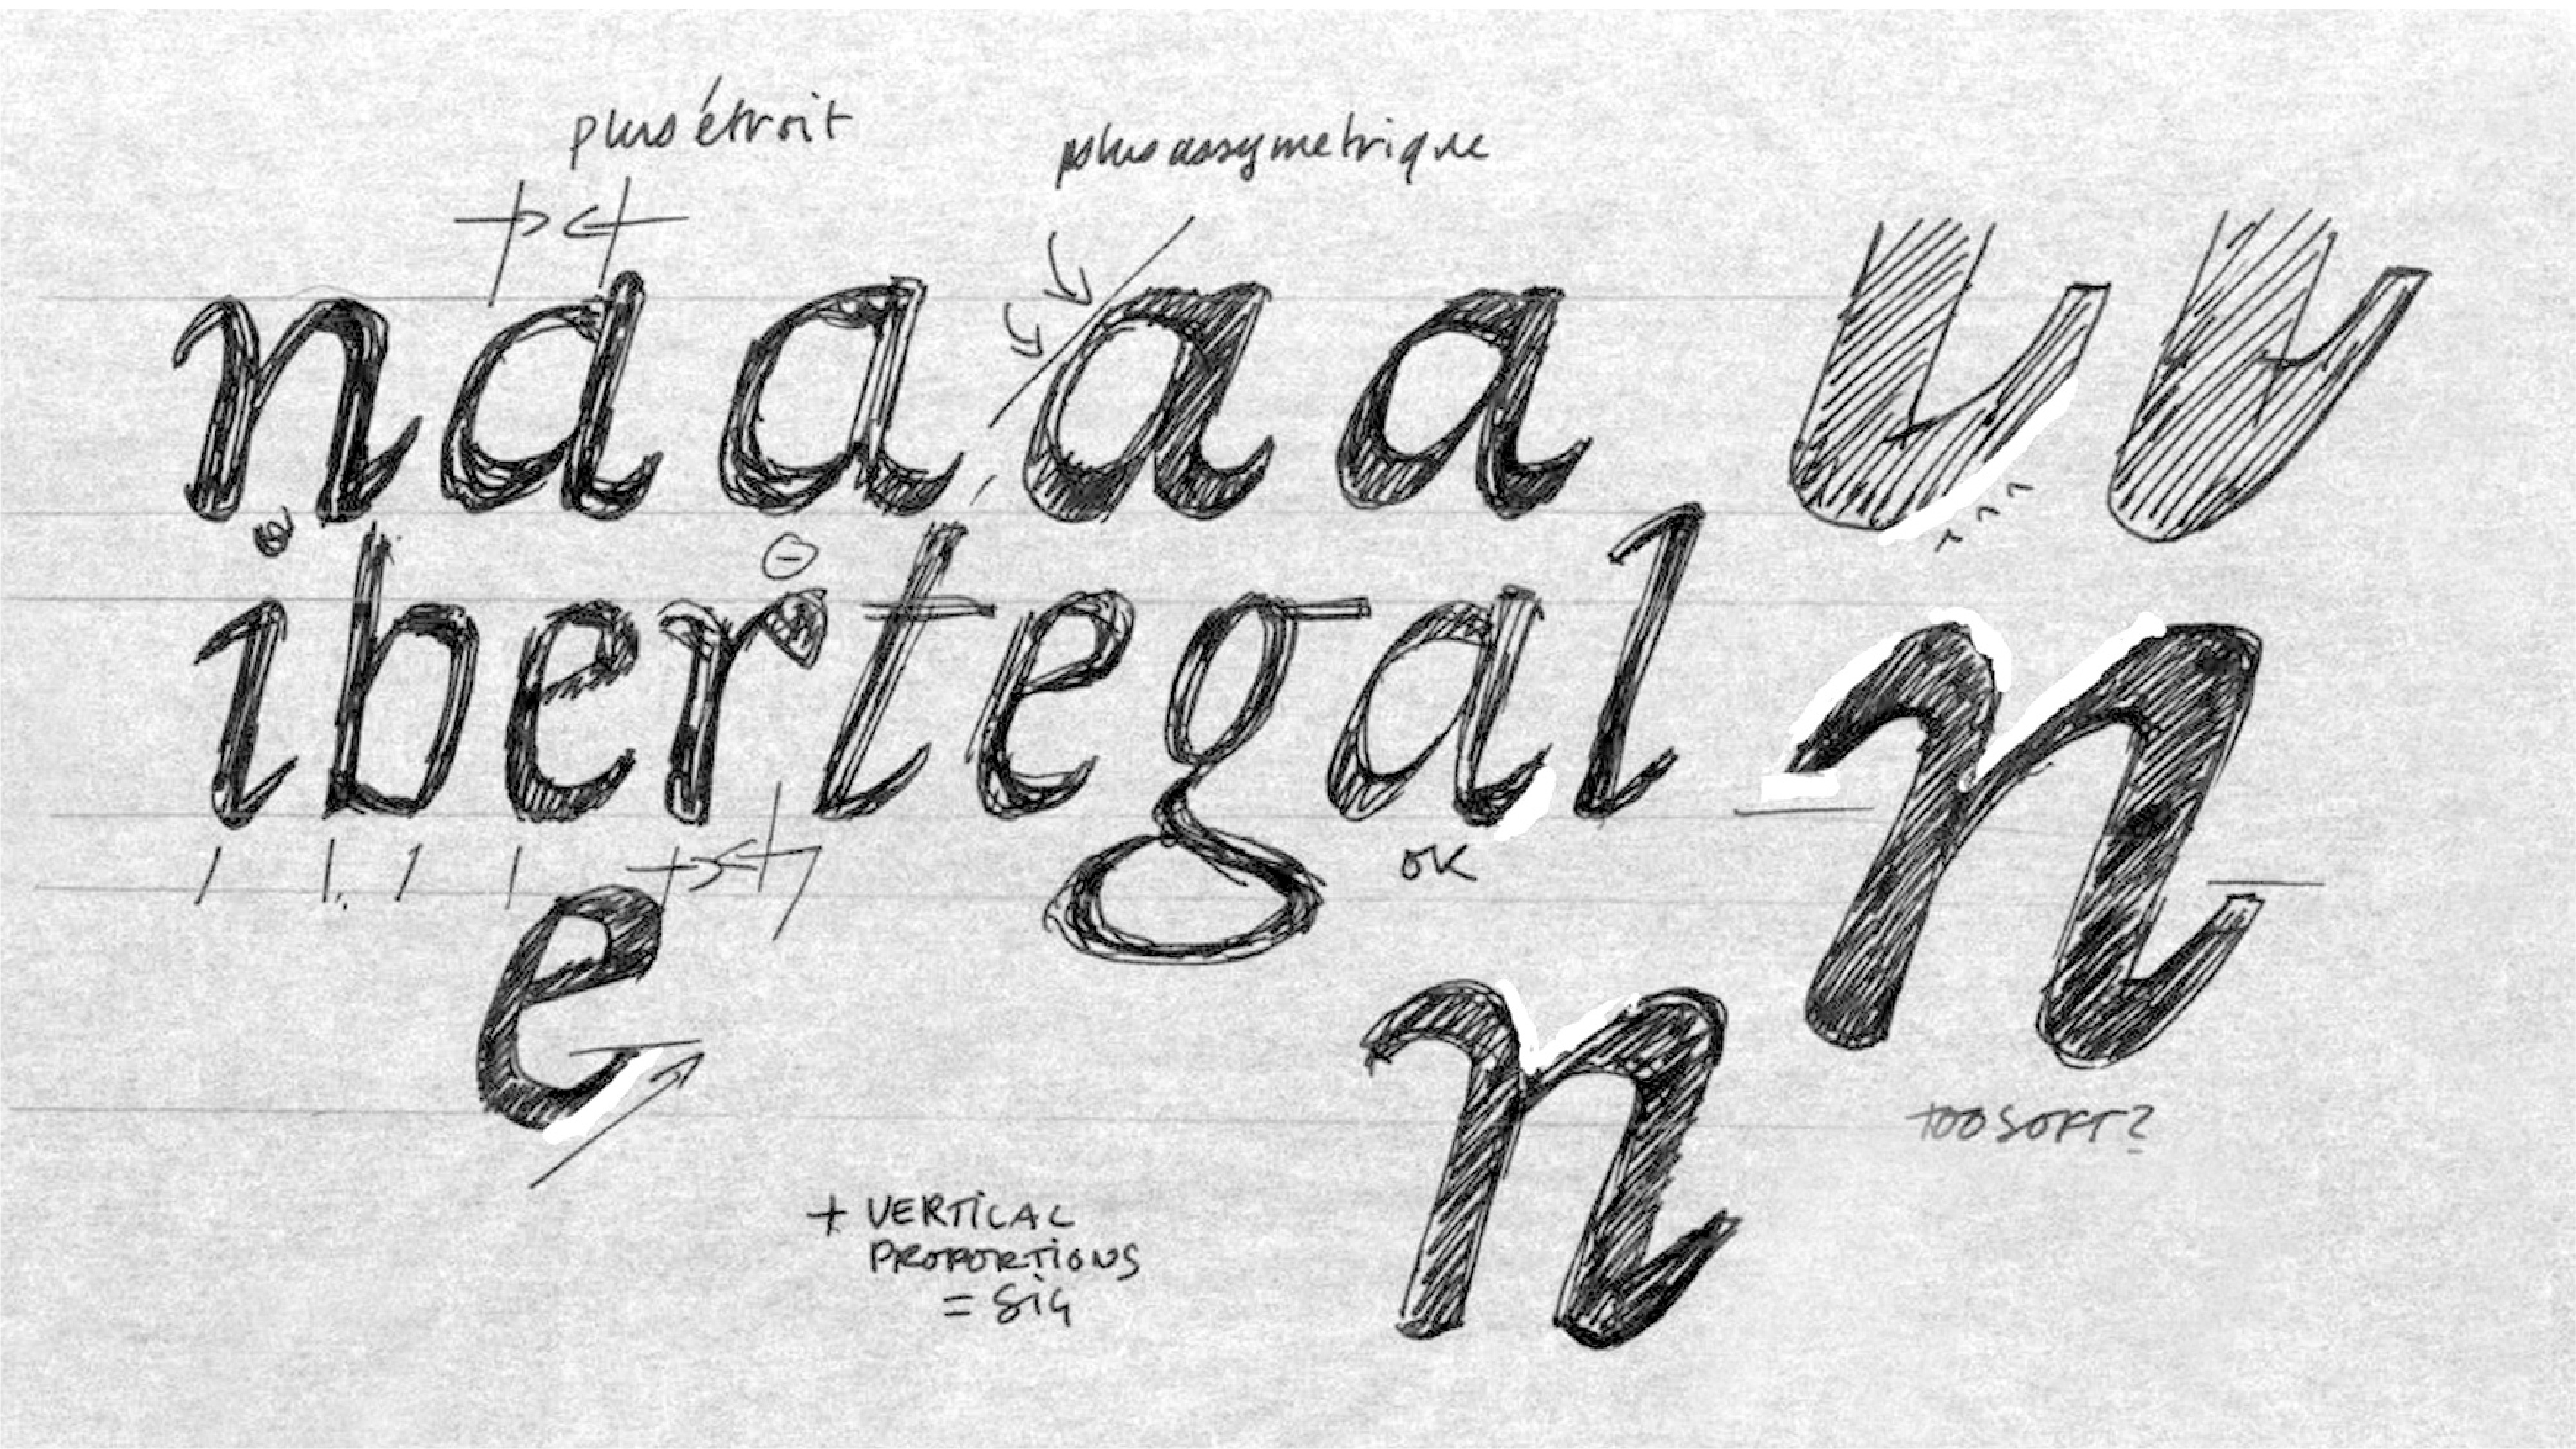 plus étroit
plus assymetrique
n a a a a
ibertegal
OK
e
n
n
TOO SOFT?
+ VERTICAL
PROPORTIONS
= Sig